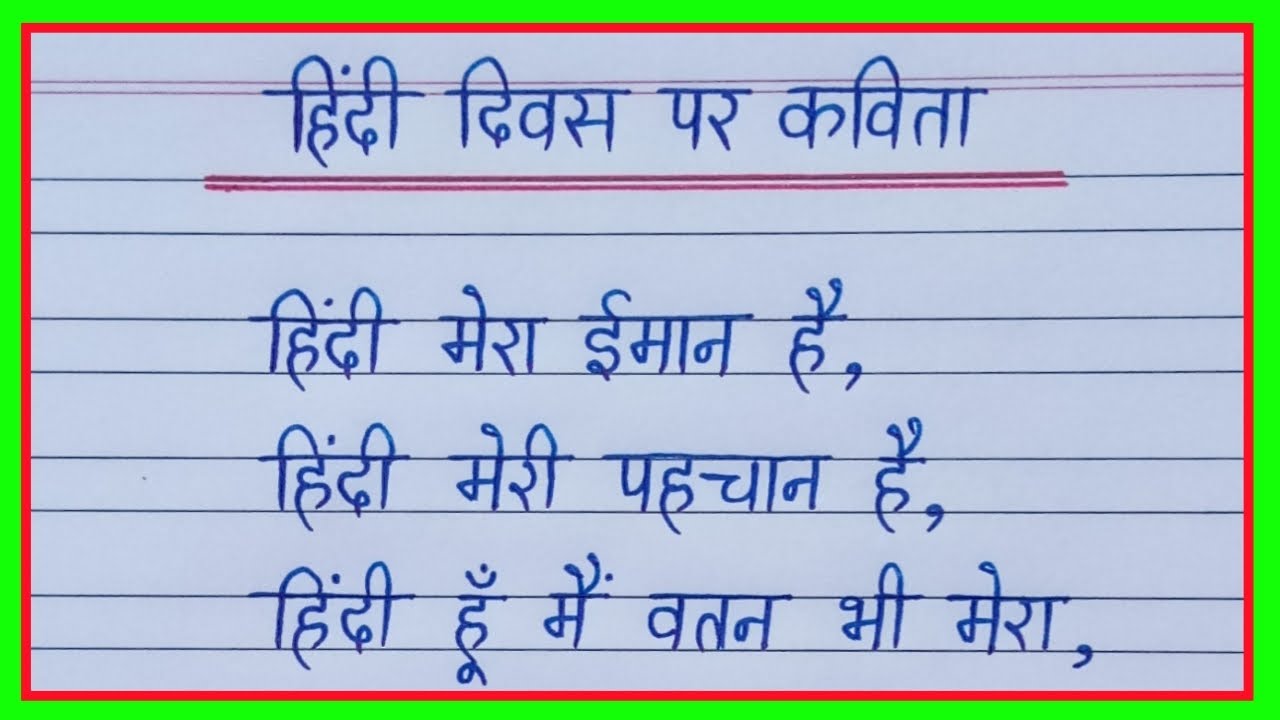 हिंदी दिवस पर कविता
हिंदी मेरा ईमान है,
हिंदी मेरी पहचान है,
हिंदी हूँ मैं वतन भी मेरा,